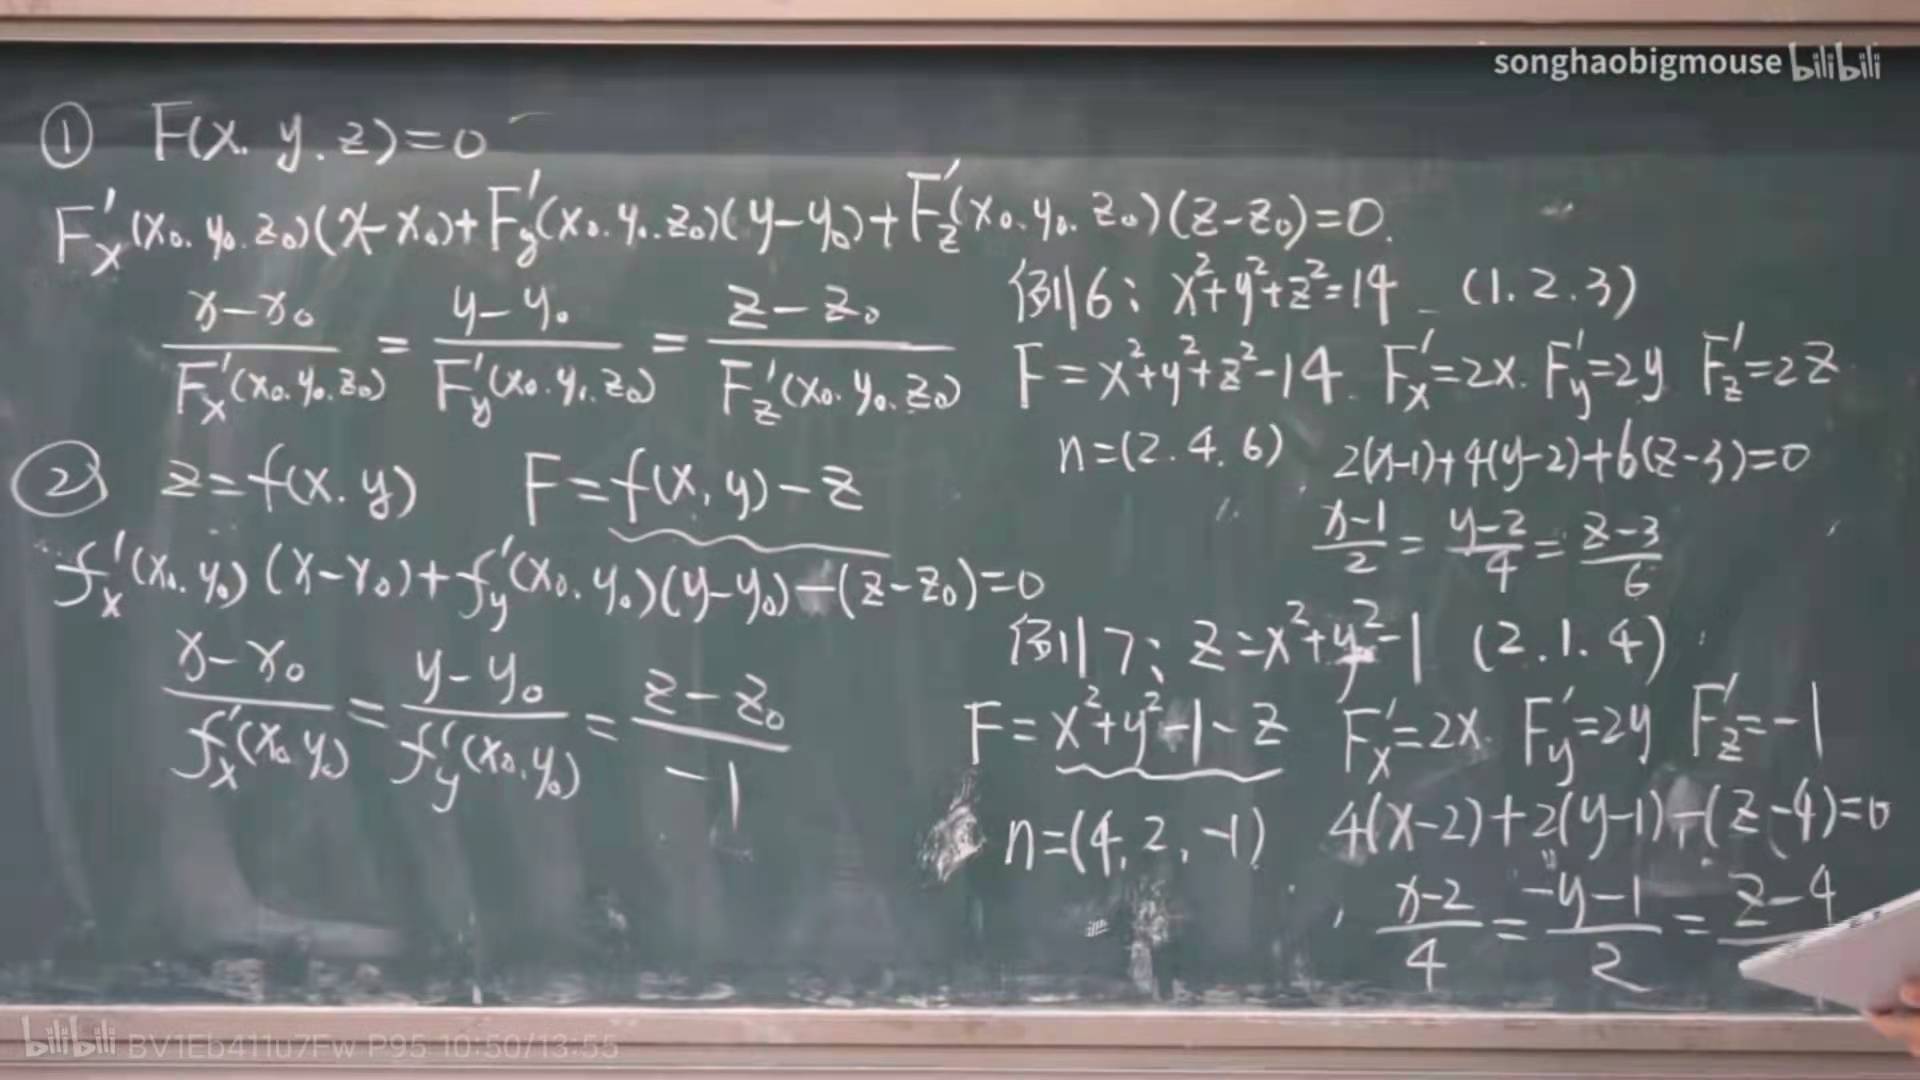 songhaobigmouse bilibili
① F(x.y.z)=0
F'x(x₀.y₀.z₀)(x-x₀)+F'y(x₀.y₀.z₀)(y-y₀)+F'z(x₀.y₀.z₀)(z-z₀)=0.
(x-x₀)/F'x(x₀.y₀.z₀) = (y-y₀)/F'y(x₀.y₀.z₀) = (z-z₀)/F'z(x₀.y₀.z₀)
② z=f(x.y) F=f(x,y)-z
f'x(x₀.y₀)(x-x₀)+f'y(x₀.y₀)(y-y₀)-(z-z₀)=0
(x-x₀)/f'x(x₀.y₀) = (y-y₀)/f'y(x₀.y₀) = (z-z₀)/-1
例6: x²+y²+z²=14 (1.2.3)
F=x²+y²+z²-14. F'x=2x. F'y=2y F'z=2z
n=(2.4.6) 2(x-1)+4(y-2)+6(z-3)=0
(x-1)/2 = (y-2)/4 = (z-3)/6
例7: z=x²+y²-1 (2.1.4)
F=x²+y²-1-z F'x=2x. F'y=2y F'z=-1
n=(4,2,-1) 4(x-2)+2(y-1)-(z-4)=0
(x-2)/4 = (y-1)/2 = z-4
bilibili BV1Eb411u7Fw P95 10:50/13:55